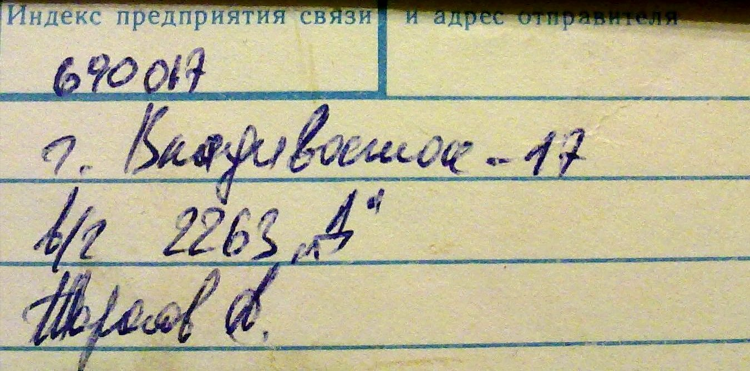 Индекс предприятия связи и адрес отправителя
690017
г. Владивосток - 17
в/г 2263 „Д“